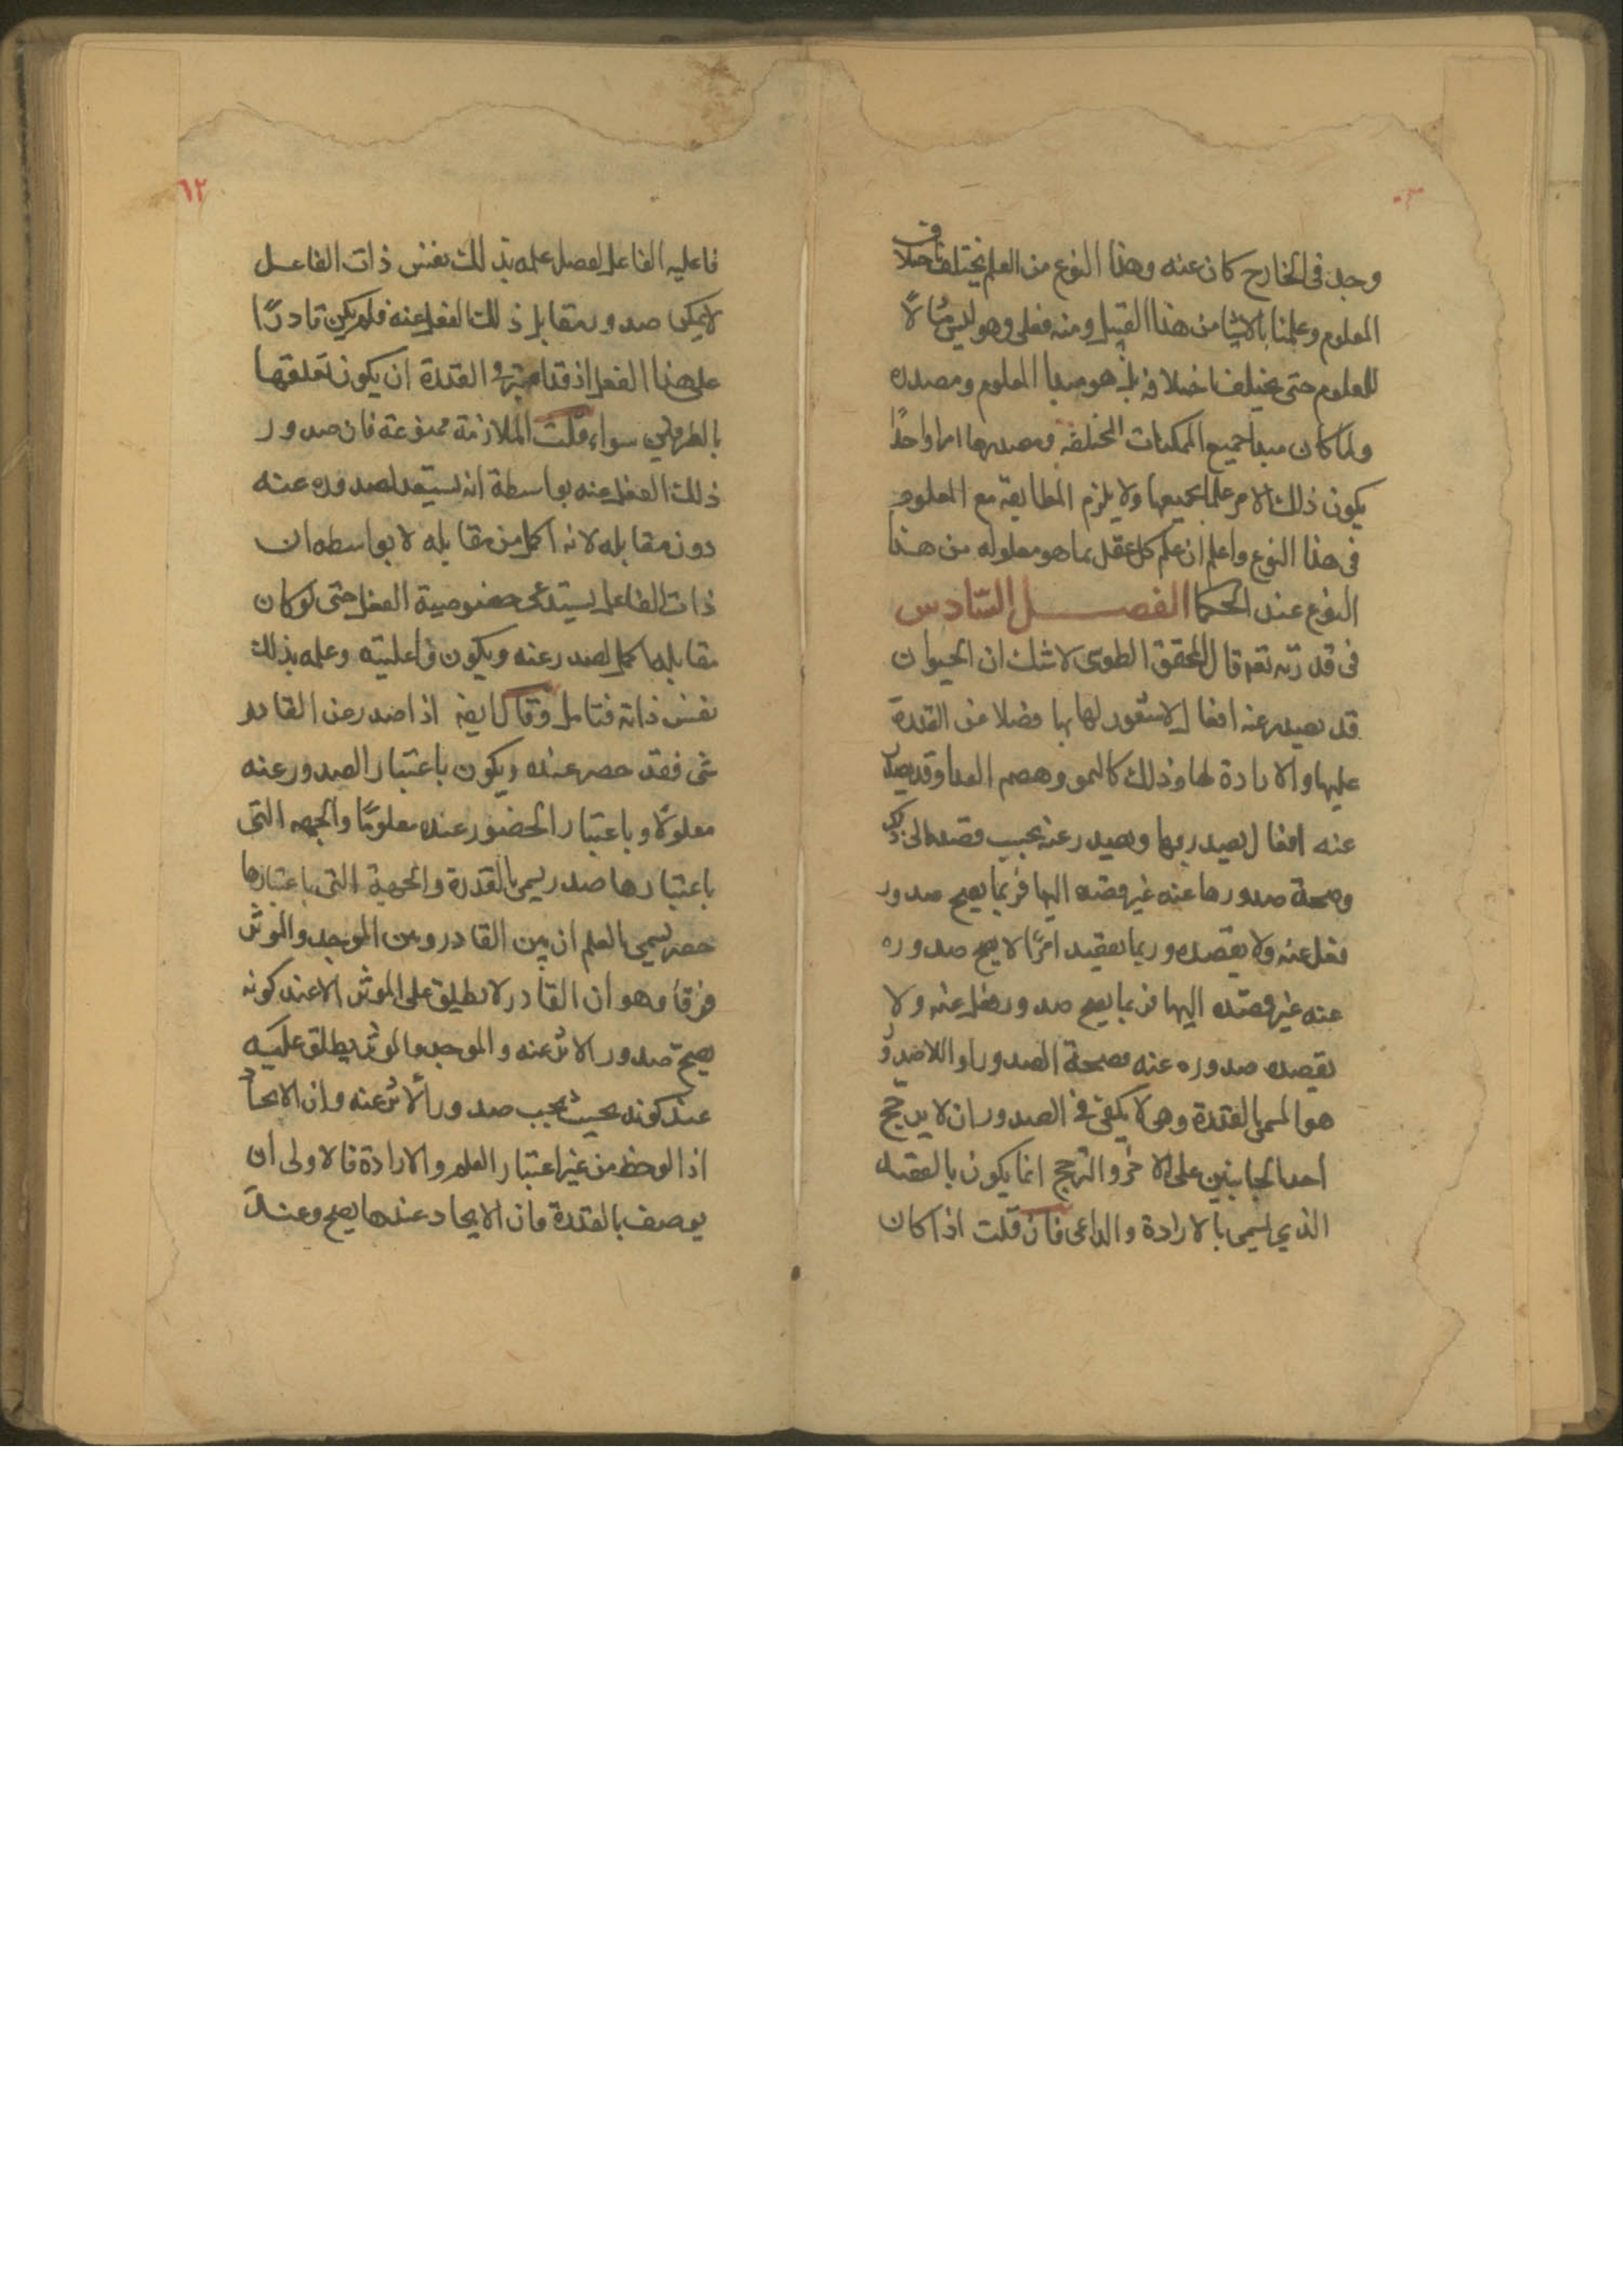 وجد فى الخارج كان عنه وهذا النوع من العلم يختلف باختلاف
المعلوم وعلمنا بالاشيا من هذا القبيل ومنه فعلى وهو ليس مثالاً
للمعلوم حتى يختلف باختلافه بل هو مبدا المعلوم ومصدره
ولما كان مبدا جميع الممكنات المختلفة ومصدرها امرا واحدًا
يكون ذلك الامر علما بجميعها ولا يلزم المطابقة مع المعلوم
فى هذا النوع واعلم ان علم كل عقل بما هو معلوله من هذا
النوع عند الحكما الفصــل السّادس
فى قدرته تعه قال المحقق الطوسى لاشك ان الحيوان
قد يصدر عنه افعال لا شعور لها بها فضلا عن القدرة
عليها والارادة لها وذلك كالنمو وهضم الغدا وقد يصدر
عنه افعال يصدر بها ويصدر عنه بحسب قصده الى ذلك
وصحة صدورها عنه غير قصده اليها فربما يصح صدور
فعل عنه ولا يقصده وربما يقصد امرًا لا يصح صدوره
عنه غير قصده اليها فربما يصح صدور فعل عنه ولا
يقصده صدوره عنه فصحة الصدور او اللاصدور
هو المسمى بالقدرة وهى لا يكفى فى الصدور ان لا يرجح
احد الجانبين على الاخر والترجح انما يكون بالقصد
الذي يسمى بالارادة والداعى فان قلت اذا كان
٦٢
فاعليه الفاعل لفصل علمه بذلك نفس ذات الفاعــل
لا يمكن صدور مقابل ذلك الفعل عنه فلم يكن قادرًا
على هذا الفعل اذ قد القدرة ان يكون تعلقها
بالطرفين سواء قلت الملازمة ممنوعة فان صدور
ذلك الفعل عنه بواسطة انه يستعد لصدوره عنه
دون مقابله لانه اكمل من مقابله لا بواسطه ان
ذات الفاعل يستدعى خصوصية الفعل حتى لو كان
مقابله اكمل لصدر عنه ويكون فاعليته وعلمه بذلك
نفس ذاته فتامل وقال ايضه اذا صدر عن القادر
شى فقد حضر عنده ويكون باعتبار الصدور عنه
معلولًا وباعتبار الحضور عنده معلومًا والجهه التى
باعتبارها صدر يسمى بالقدرة والجهة التى باعتبارها
حضر يسمى بالعلم ان بين القادر وبين الموجد والموثر
فرقا وهو ان القادر لا يطلق على الموثر الا عند كونه
يصح صدور الاثر عنه والموجد والموثر يطلق عليه
عند كونه بحيث يجب صدور الاثر عنه وان الايجاد
اذا لوحظ من غير اعتبار العلم والارادة فالاولى ان
يوصف بالقدرة فان الايجاد عندها يصح وعند